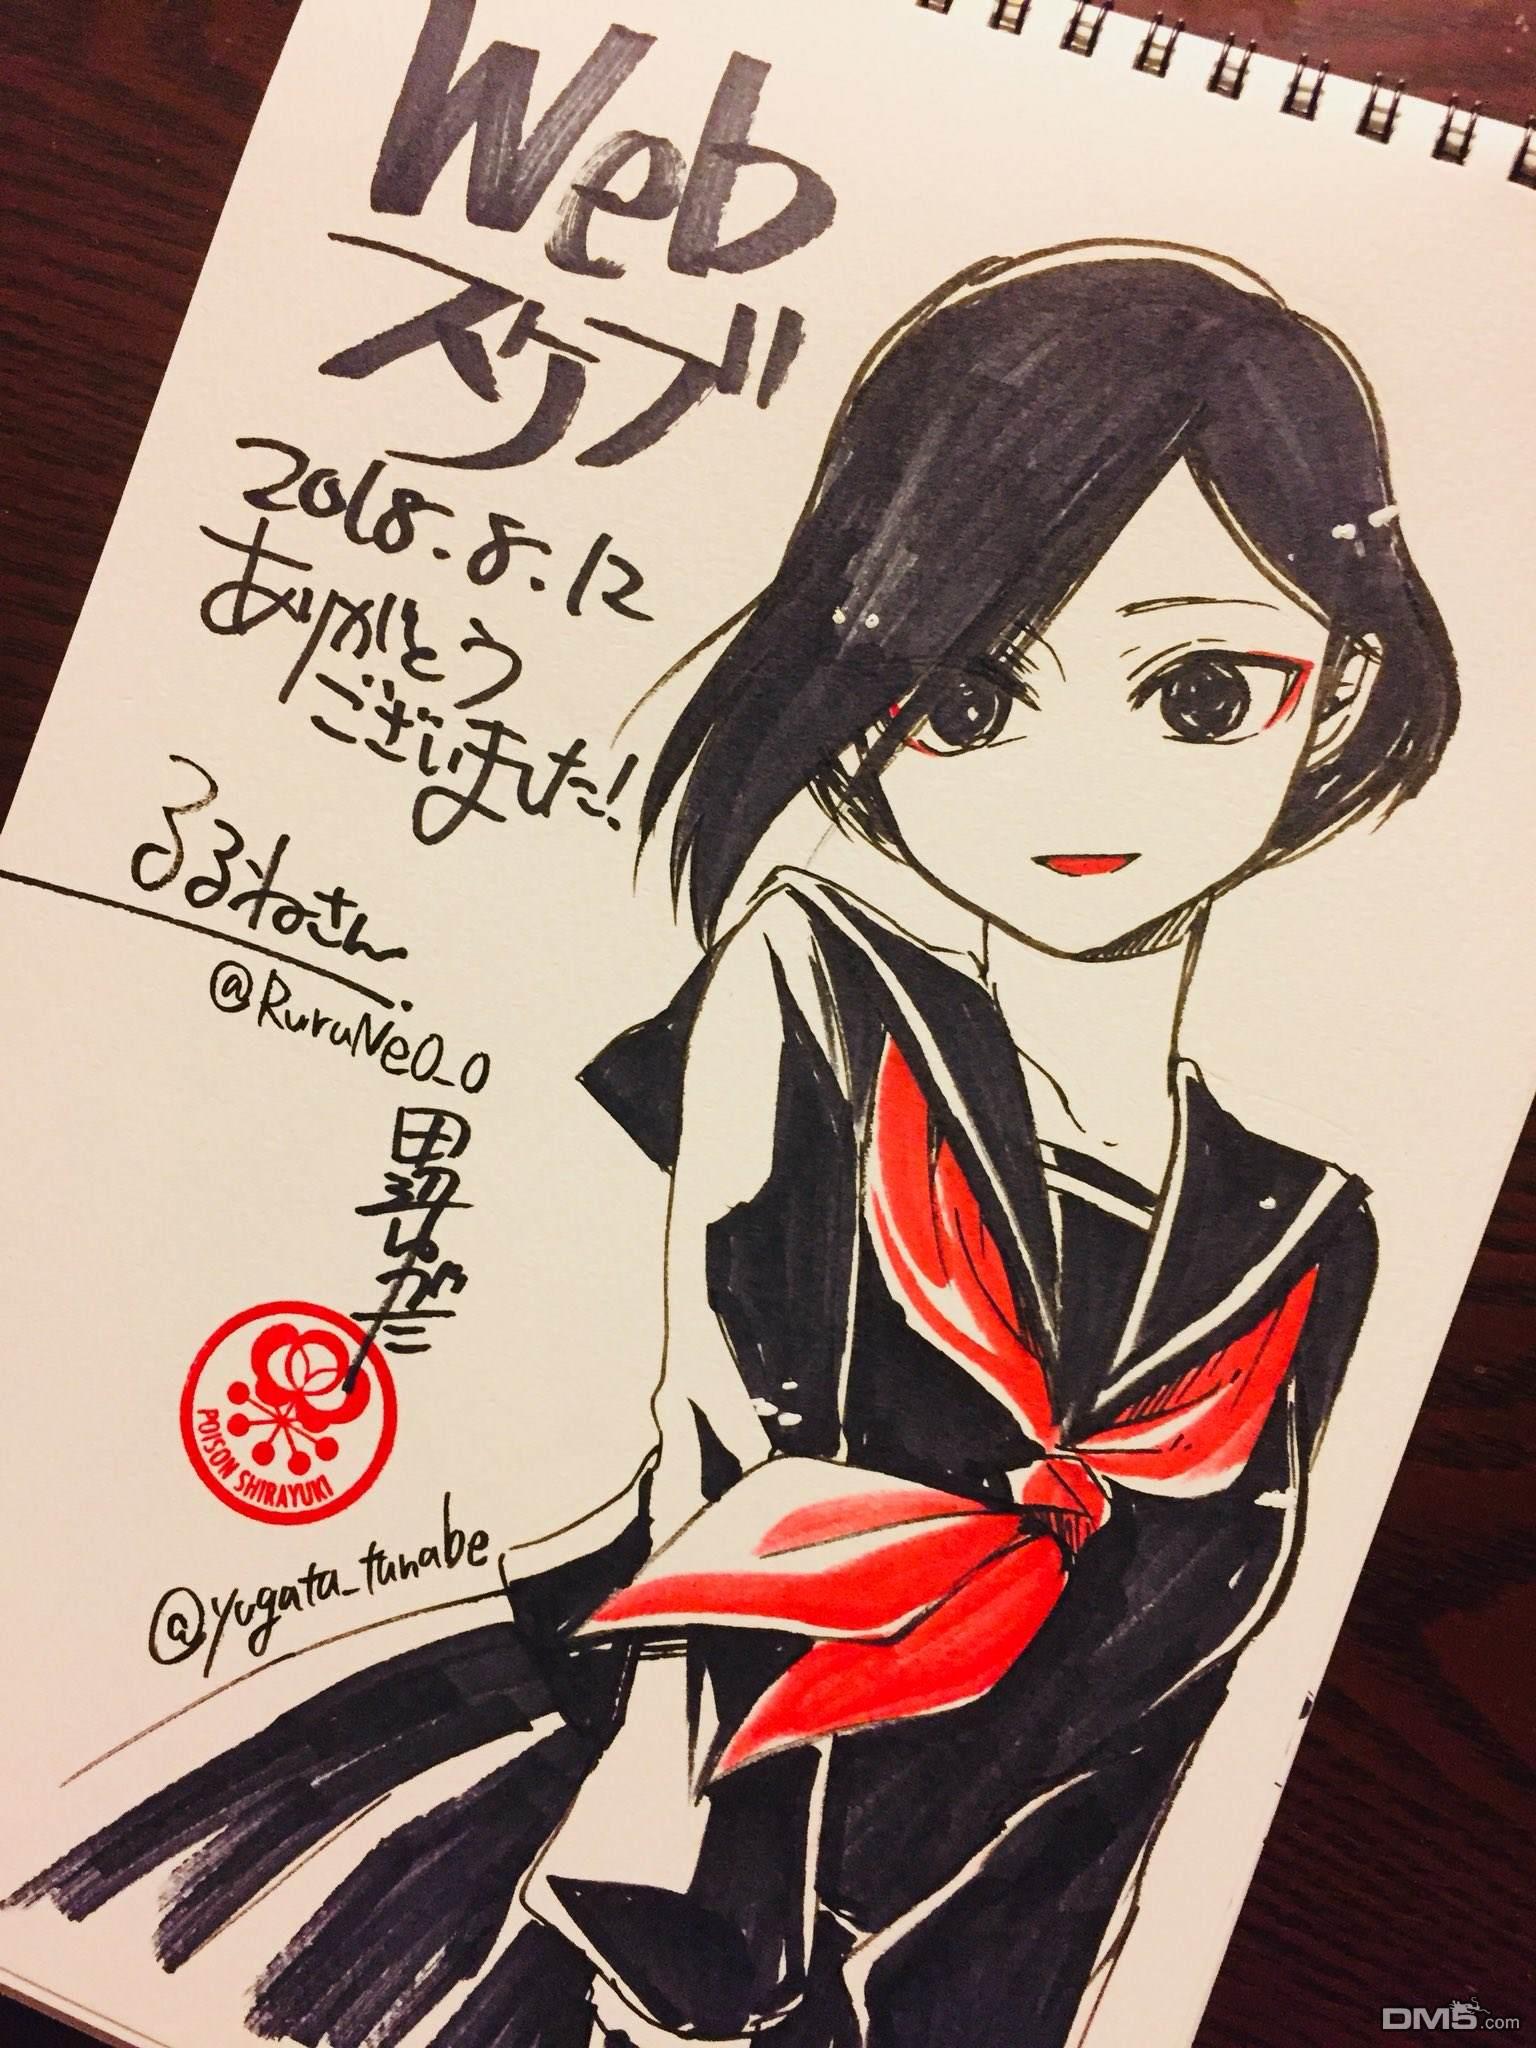 Web
スケブ
2018.8.12
ありがとう
ございました!
るるねさん
@RuruNeO_O
田辺ゆがた
POISON SHIRAYUKI
@yugata_tanabe
DM5.com